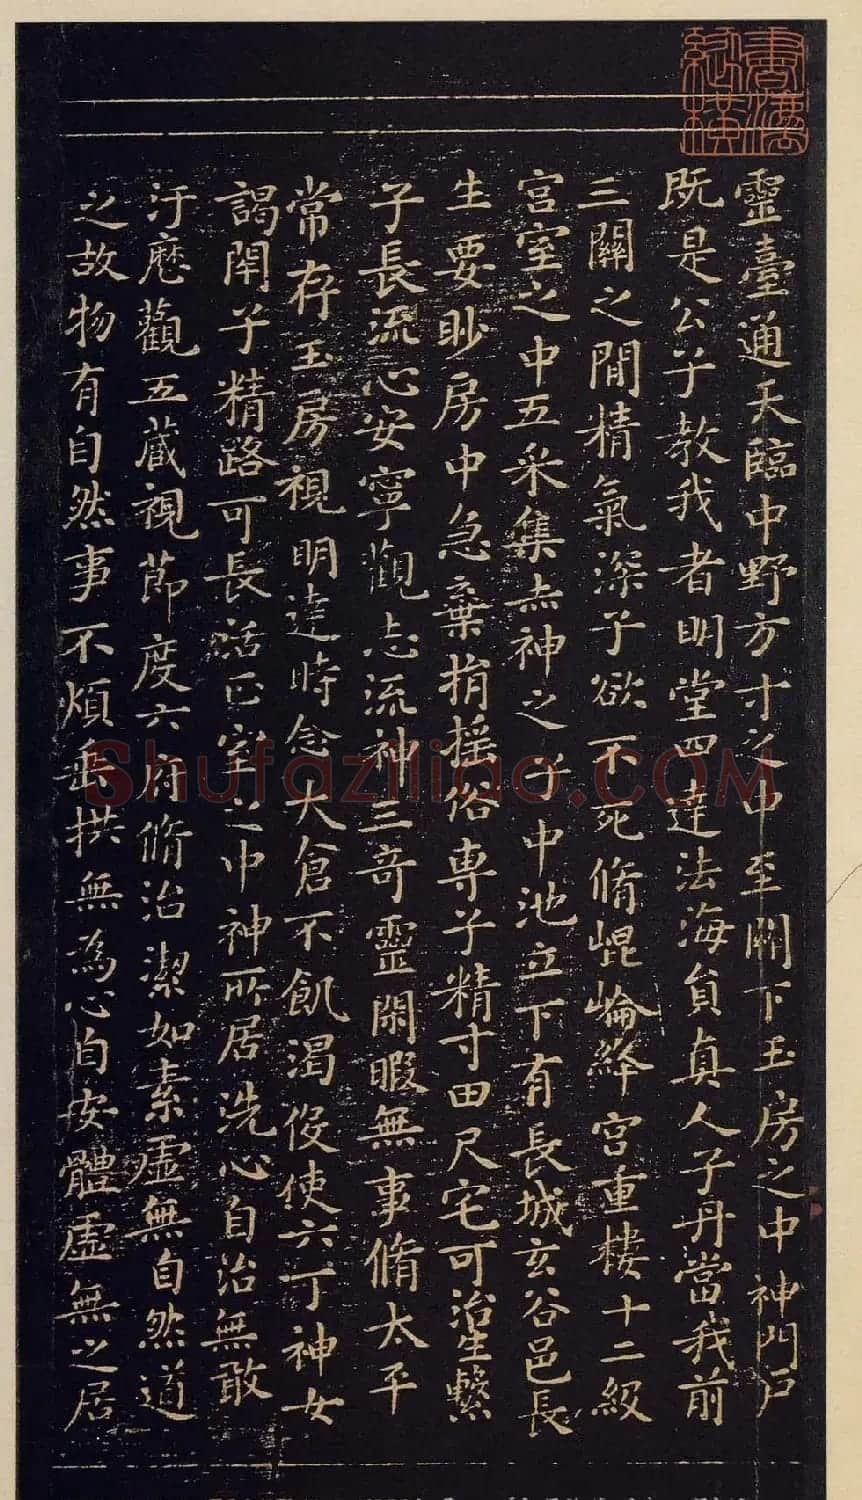 靈臺通天臨中野方寸之中至關下玉房之中神門戶
既是公子教我者明堂四達法海負真人子丹當我前
三關之間精氣深子欲不死脩崐崘絳宮重樓十二級
宮室之中五采集赤神之子中池立下有長城玄谷邑長
生要眇房中急棄捐搖俗專子精寸田尺宅可治生繫
子長流心安寧觀志流神三奇靈閑暇無事脩太平
常存玉房視明達時念大倉不飢渴役使六丁神女
謁閉子精路可長活正室之中神所居洗心自治無敢
汙歷觀五藏視節度六府脩治潔如素虛無自然道
之故物有自然事不煩垂拱無為心自安體虛無之居
Shufaziliao.COM